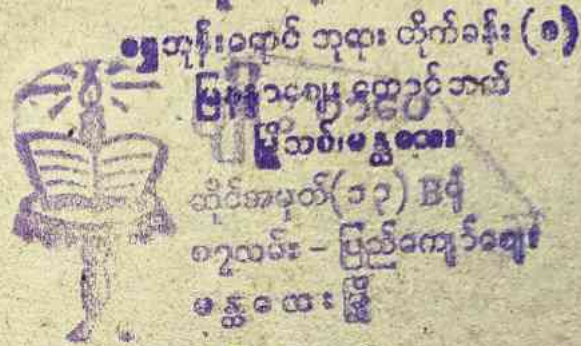 ရွှေဘုန်းရောင် ဘုရား တိုက်ခန်း (၈)
မြန်မာ့ဈေး တောင်ဘက်
မြို့သစ်၊ မန္တလေး
ဆိုင်အမှတ်(၁၃) Bရုံ
၈၇လမ်း - ပြည်ကျော်ဈေး
မန္တလေးမြို့